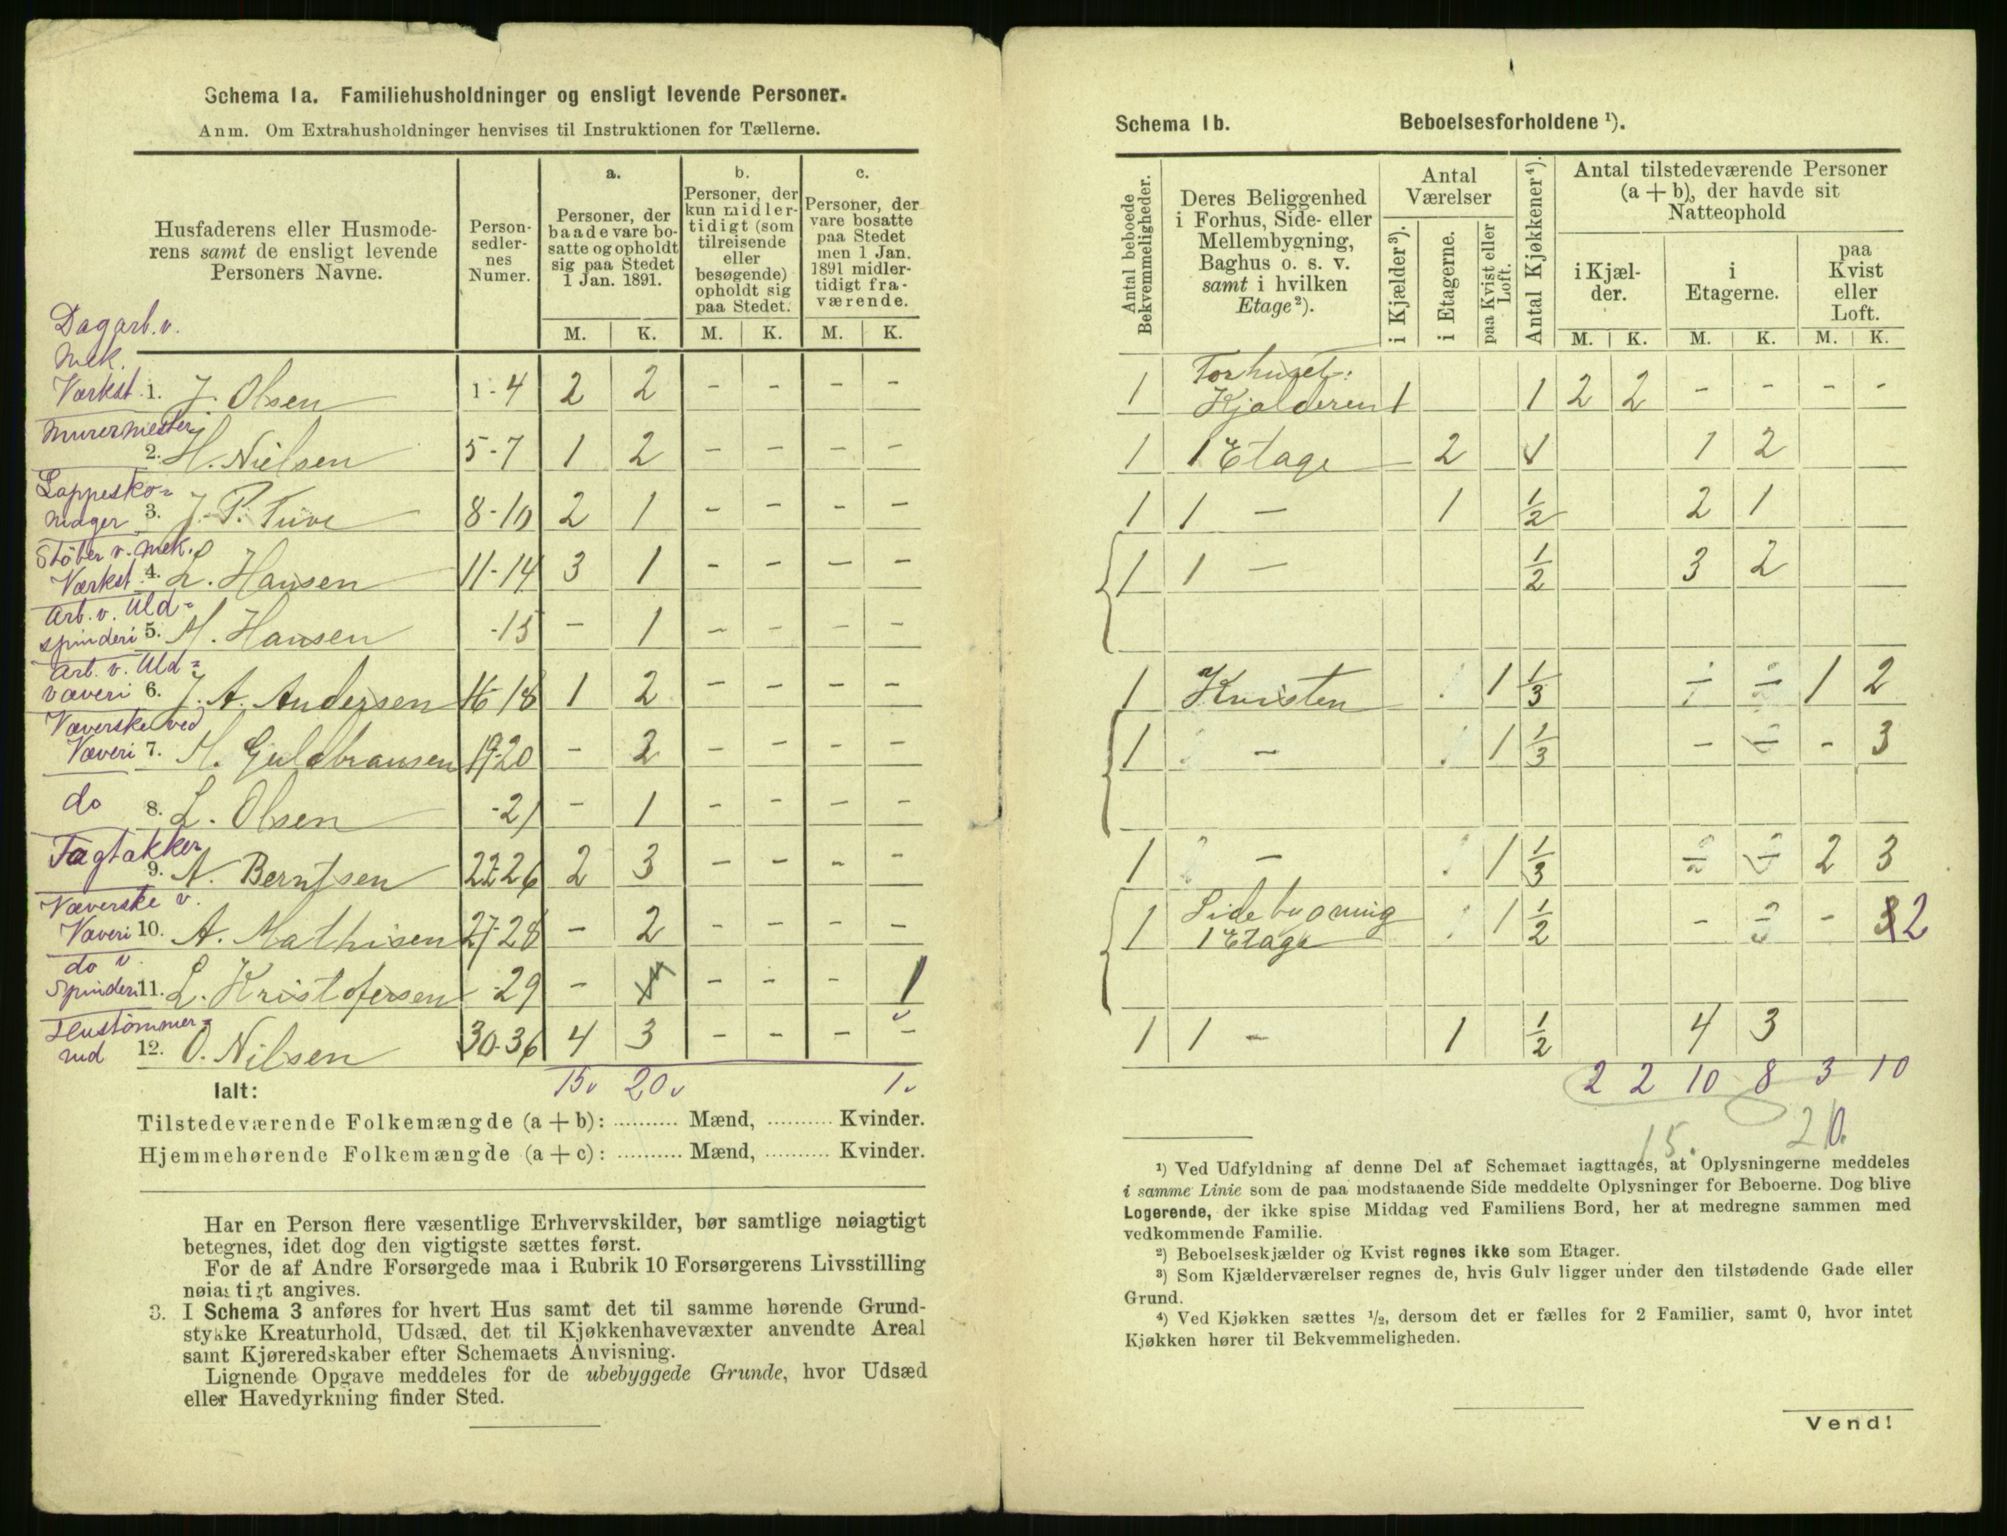 Schema 1a. Familiehusholdninger og ensligt levende Personer.
Anm. Om Extrahusholdninger henvises til Instruktionen for Tællerne.
Husfaderens eller Husmoderens samt de ensligt levende Personers Navne.
Person-sedler-nes Numer.
a. Personer, der baade vare bosatte og opholdt sig paa Stedet 1 Jan. 1891.
b. Personer, der kun midlertidigt (som tilreisende eller besøgende) opholdt sig paa Stedet.
c. Personer, der vare bosatte paa Stedet men 1 Jan. 1891 midlertidigt fraværende.
M. K. M. K. M. K.
Dagarb. v. mek. Værkst. 1. J. Olsen 1-4 2 2 - - - -
Murermester 2. H. Nielsen 5-7 1 2 - - - -
Lappeskomager 3. J. P. Tuve 8-10 2 1 - - - -
Støber v. mek. Værkst. 4. L. Hansen 11-14 3 1 - - - -
Arb. v. Uldspinderi 5. M. Hansen -15 - 1 - - - -
Arb. v. Uldvæveri 6. J. A. Andersen 16-18 1 2 - - - -
Væverske ved Væveri 7. M. Guldbransen 19-20 - 2 - - - -
do 8. L. Olsen -21 - 1 - - - -
Tagtækker 9. A. Berntsen 22-26 2 3 - - - -
Væverske v. Væveri 10. A. Mathisen 27-28 - 2 - - - -
do v. Spinderi 11. L. Kristofersen -29 - - - - 1
Hustømmermd 12. O. Nilsen 30-36 4 3 - - - -
Ialt: 15 20 1
Tilstedeværende Folkemængde (a + b): .......... Mænd, .......... Kvinder.
Hjemmehørende Folkemængde (a + c): .......... Mænd, .......... Kvinder.
Har en Person flere væsentlige Erhvervskilder, bør samtlige nøiagtigt
betegnes, idet dog den vigtigste sættes først.
For de af Andre Forsørgede maa i Rubrik 10 Forsørgerens Livsstilling
nøiagtigt angives.
3. I Schema 3 anføres for hvert Hus samt det til samme hørende Grund-
stykke Kreaturhold, Udsæd, det til Kjøkkenhavevæxter anvendte Areal
samt Kjøreredskaber efter Schemaets Anvisning.
Lignende Opgave meddeles for de ubebyggede Grunde, hvor Udsæd
eller Havedyrkning finder Sted.
Schema 1b. Beboelsesforholdene 1).
Antal beboede Bekvemmeligheder.
Deres Beliggenhed i Forhus, Side- eller Mellembygning, Baghus o. s. v. samt i hvilken Etage 2).
Antal Værelser
i Kjælder 3).
i Etagerne.
paa Kvist eller Loft.
Antal Kjøkkener 4).
Antal tilstedeværende Personer (a + b), der havde sit Natteophold
i Kjælder.
i Etagerne.
paa Kvist eller Loft.
M. K. M. K. M. K.
1 Forhuset: Kjælderen 1 1 2 2 - - - -
1 1 Etage 2 1 1 2
1 1 - 1 1/2 2 1
1 1 - 1/2 3 2
1 Kvisten 1 1/3 1 2
1 - 1 1/3 - - - 3
1 - 1 1/3 2 3
1 Sidebygning 1 Etage 1 1/2 - - 2
1 1 - 1 1/2 4 3
2 2 10 8 3 10
15. 20.
1) Ved Udfyldning af denne Del af Schemaet iagttages, at Oplysningerne meddeles
i samme Linie som de paa modstaaende Side meddelte Oplysninger for Beboerne. Dog blive
Logerende, der ikke spise Middag ved Familiens Bord, her at medregne sammen med
vedkommende Familie.
2) Beboelseskjælder og Kvist regnes ikke som Etager.
3) Som Kjælderværelser regnes de, hvis Gulv ligger under den tilstødende Gade eller
Grund.
4) Ved Kjøkken sættes 1/2, dersom det er fælles for 2 Familier, samt 0, hvor intet
Kjøkken hører til Bekvemmeligheden.
Vend!